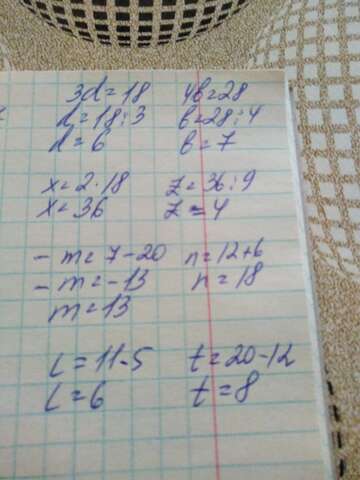 3d=18 4b=28
d=18:3 b=28:4
d=6 b=7
x=2·18 z=36:9
x=36 z=4
-m=7-20 n=12+6
-m=-13 n=18
m=13
l=11-5 t=20-12
l=6 t=8